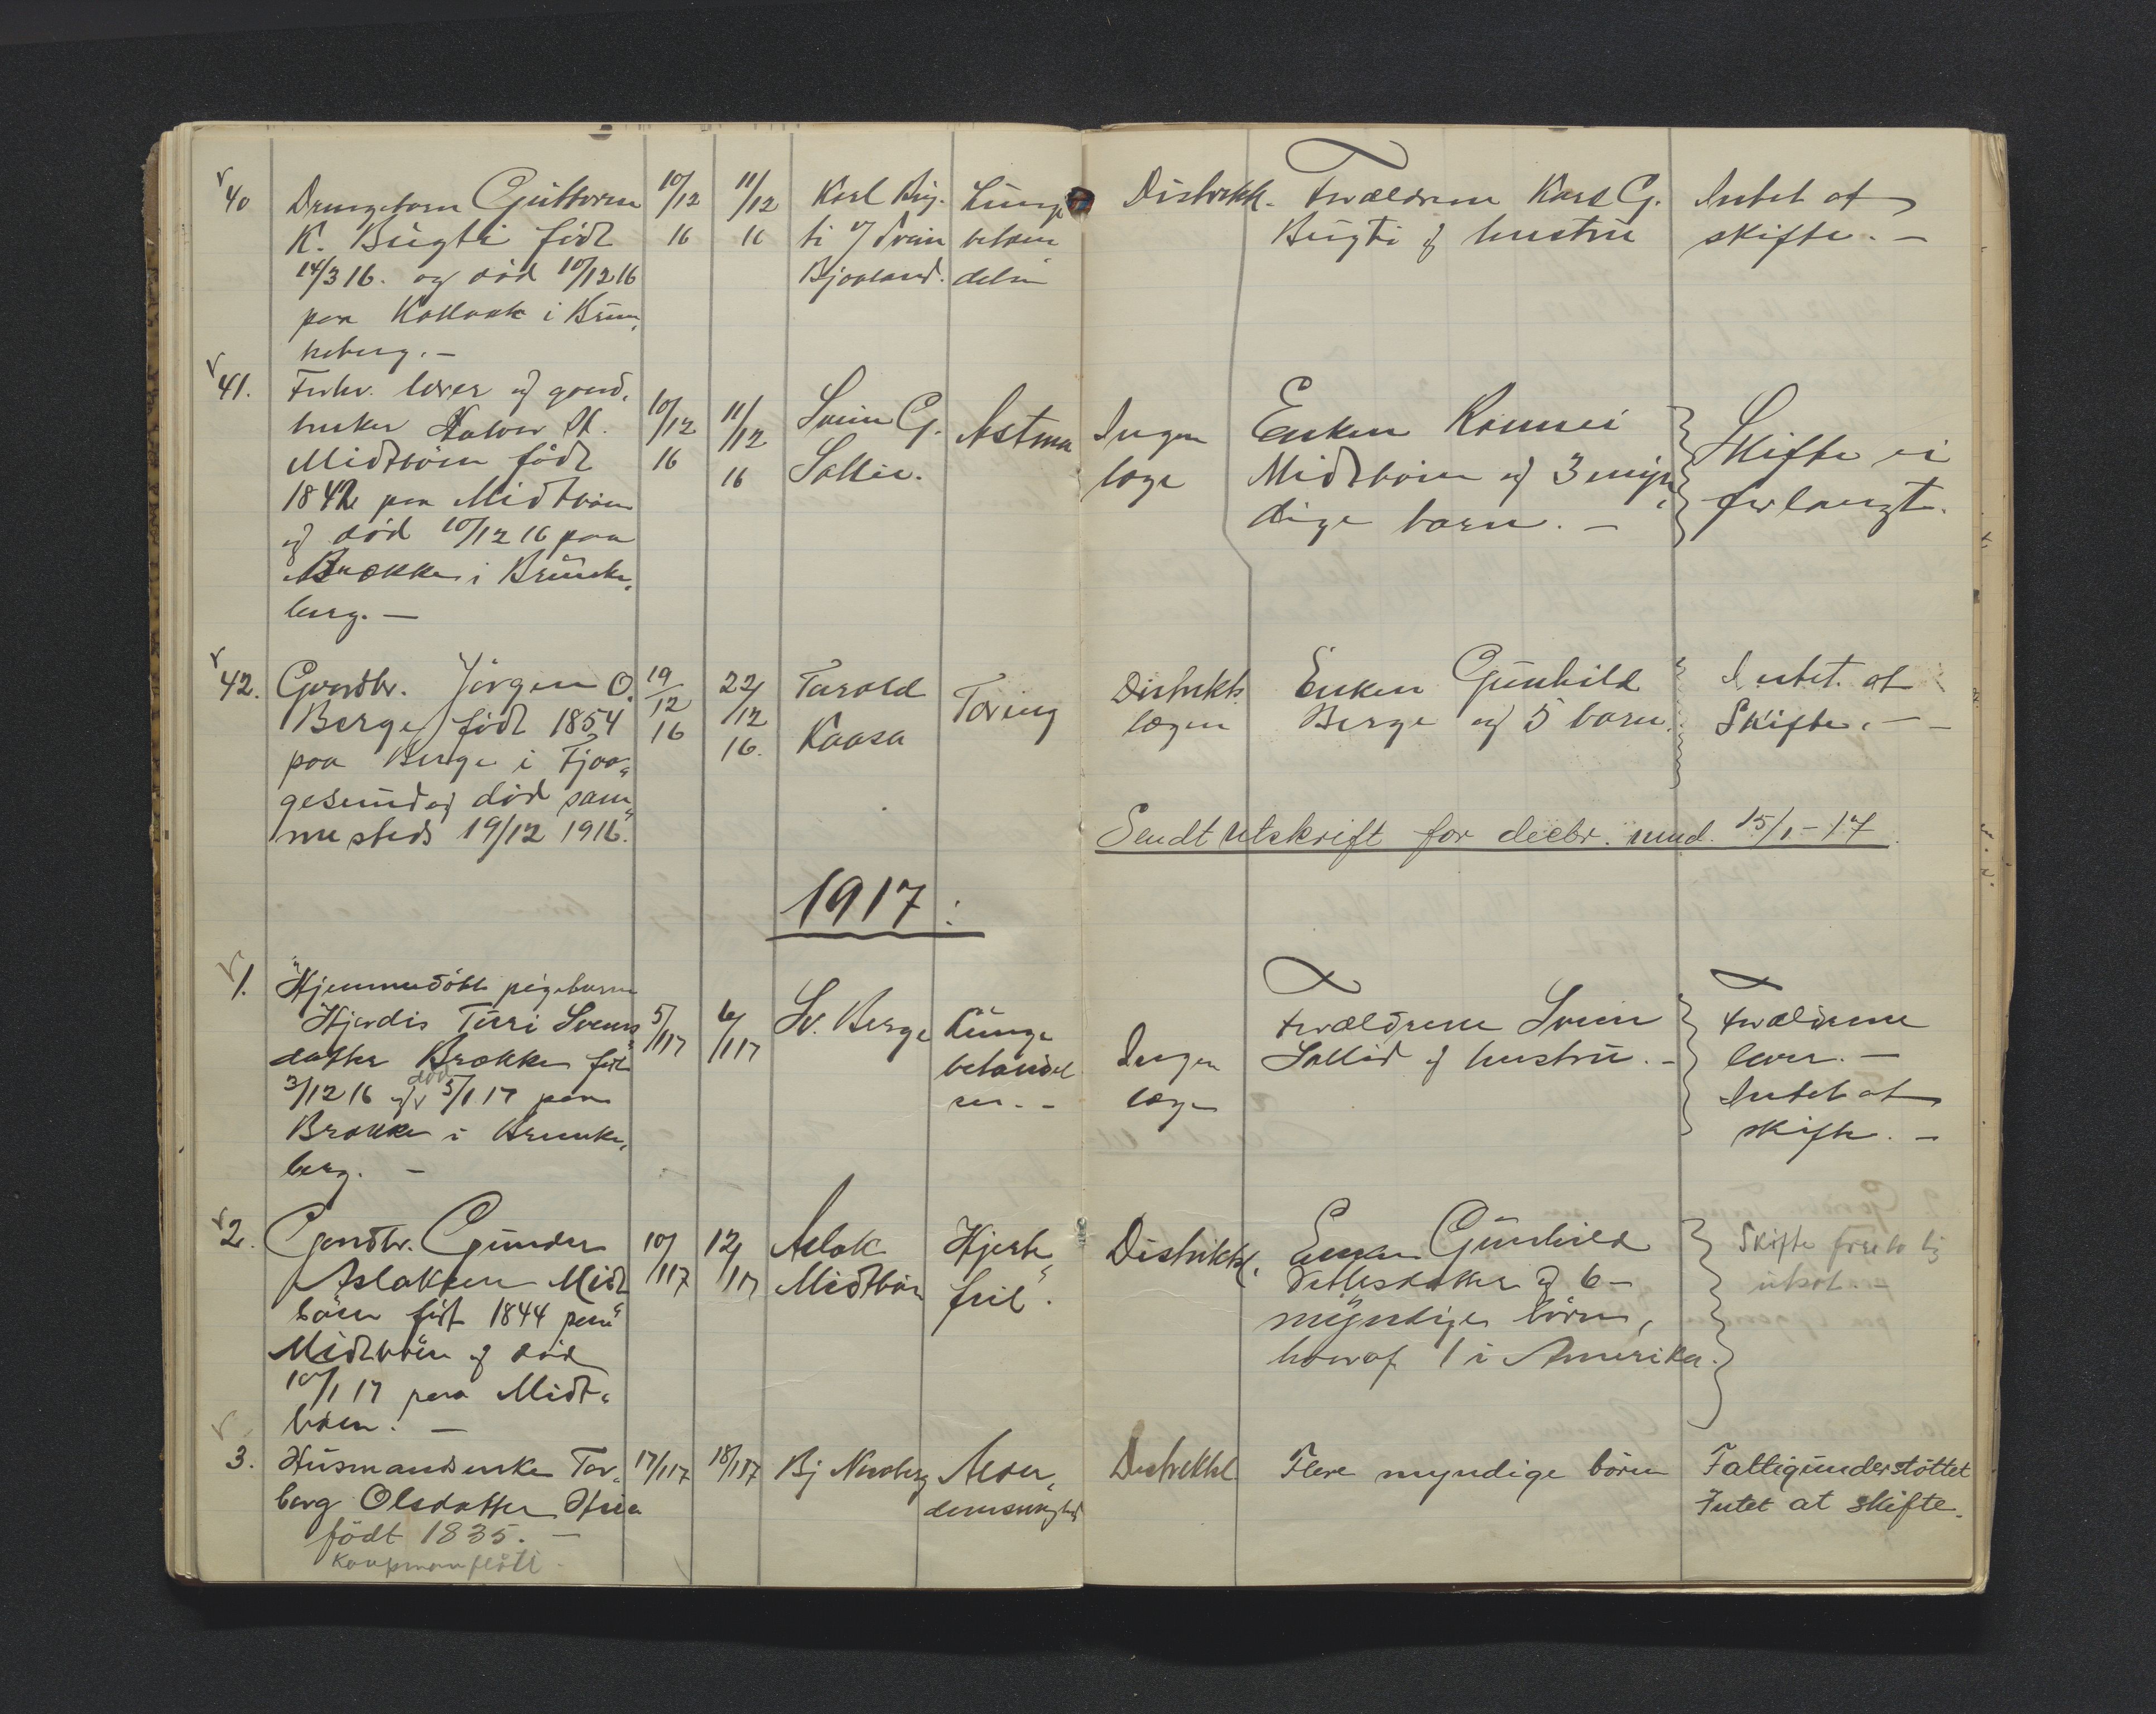 40 Drengebarn Guttorm
K. Bugti født
14/3 16. og död 10/12 16
paa Kallaak i Brun,
keberg. —
10/12 16
11/12 16
Karl Bug-
ti v/ Svein
Bjaaland.
Lunge
betæn
delse
Distrikk.
Forældrene Karl G.
Bugti og hustru
Intet at
skifte. —
41. Forhv. lærer og gaard,
bruker Halvor
Midtböen födt
1842 paa Midtböen
og död 10/12 16 paa
Brække i Brunke,
berg. —
10/12 16
11/12 16
Svein G.
Sallie.
Astma
Ingen
læge
Enken
Midtböen og 3 myn,
dige barn. —
Skifte ei
forlangt.
42. Gaardbr. Jörgen O.
Berge födt 1854
paa Berge i Fjaa„
gesund og död sam„
mesteds 19/12 1916.
19/12 16
22/12 16.
Tarald
Kaasa
Tæring
Distrikts
lægen
Enken Gunhild
Berge og 5 barn.
Intet at
Skifte. —
Sendt utskrift for decbr. mnd. 15/1 - 17.
1917:
1. Hjemmedöbt pigebarn
Hjerdis Turi Sveins„
datter Brække födt
3/12 16 og död 5/1 17 paa
Brække i Brunke,
berg. —
5/1 17
6/1 17
Sv. Berge
Lunge
betændel
ser. -
Ingen
læge
Forældrene Svein
Sallid og hustru. -
Forældrene
lever. —
Intet at
skifte. —
2. Gaardbr. Gunder
Aslaksen Midt
böen födt 1844 paa
Midtböen og död
10/1 17 paa Midt„
böen. —
10/1 17
12/1 17
Aslak
Midtböen
Hjerte„
feil.
Distrikts.
Enken Gunhild
og 6 —
myndige börn,
hvoraf 1 i Amerika.
Skifte
3. Husmandsenke Tor„
berg Olsdatter
födt 1835. —
Kaupmanflåti.
17/1 17
18/1 17
Bj
Alder„
domssvaghed
Distriktsl
Flere myndige börn
Fattigunderstöttet
Intet at skifte.